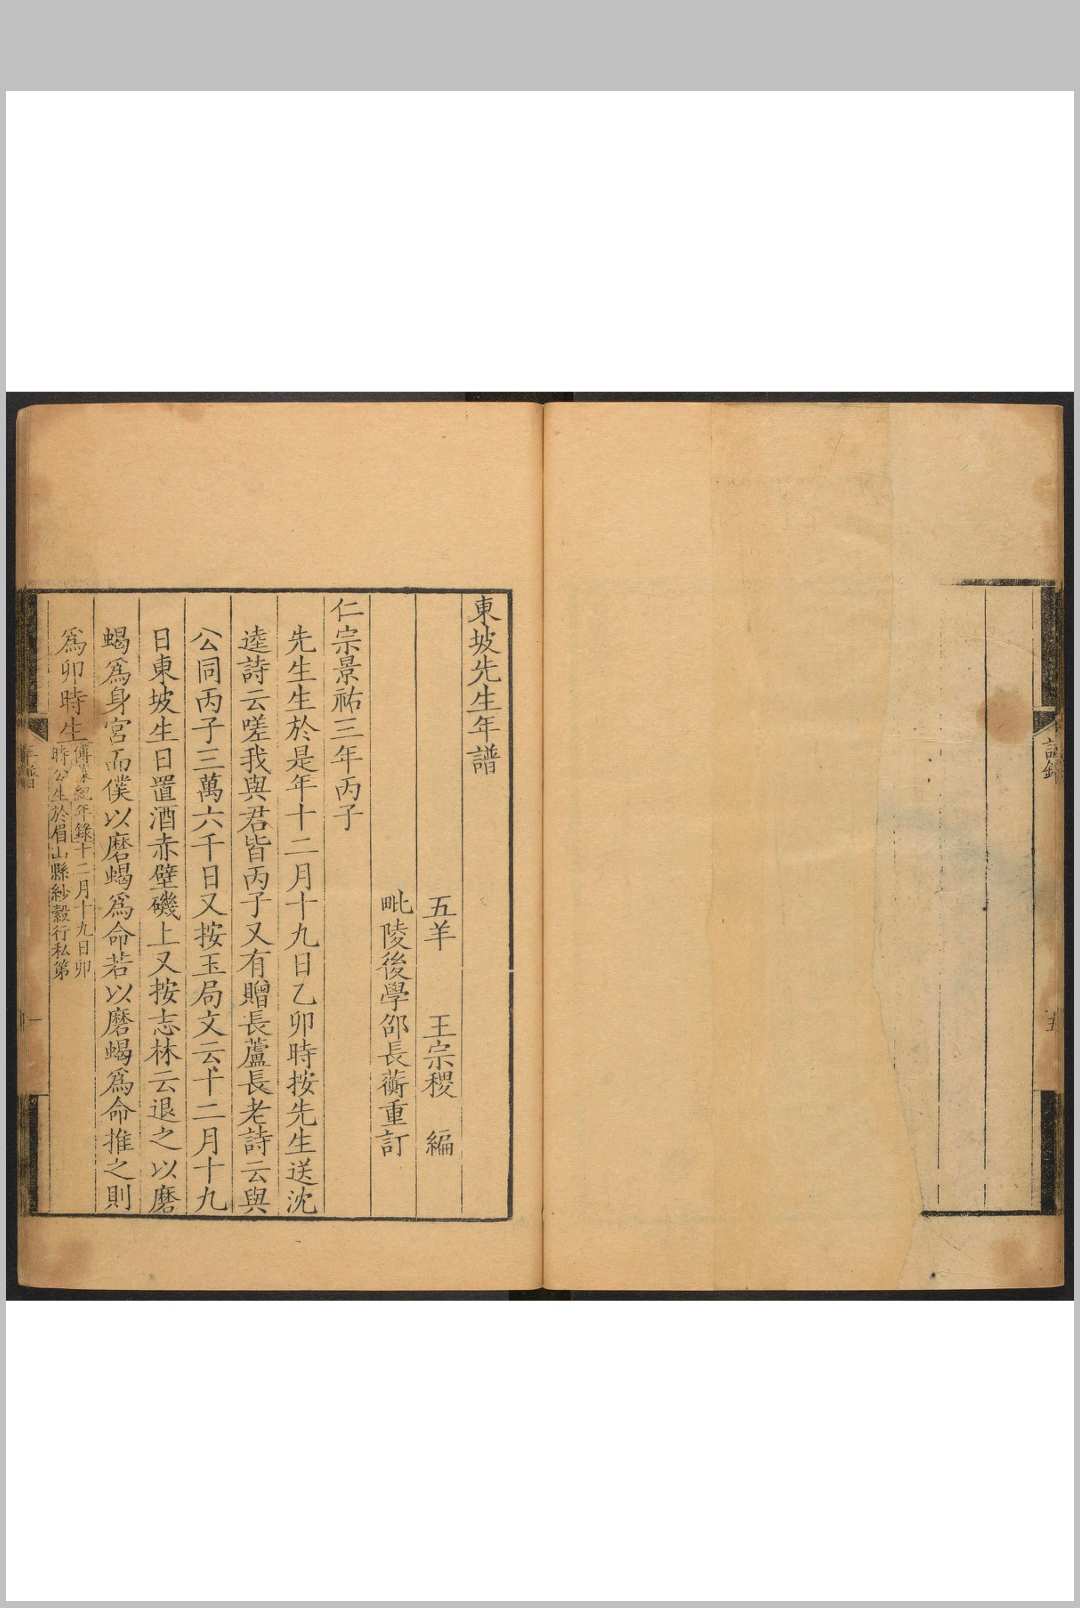 東坡先生年譜
五羊 王宗稷 編
毗陵後學邵長蘅重訂
仁宗景祐三年丙子
先生生於是年十二月十九日乙卯時按先生送沈
逵詩云嗟我與君皆丙子又有贈長蘆長老詩云與
公同丙子三萬六千日又按玉局文云十二月十九
日東坡生日置酒赤壁磯上又按志林云退之以磨
蝎爲身宮而僕以磨蝎爲命若以磨蝎爲命推之則
爲卯時生
傅藻紀年錄十二月十九日卯
時公生於眉山縣紗縠行私第
年譜
一